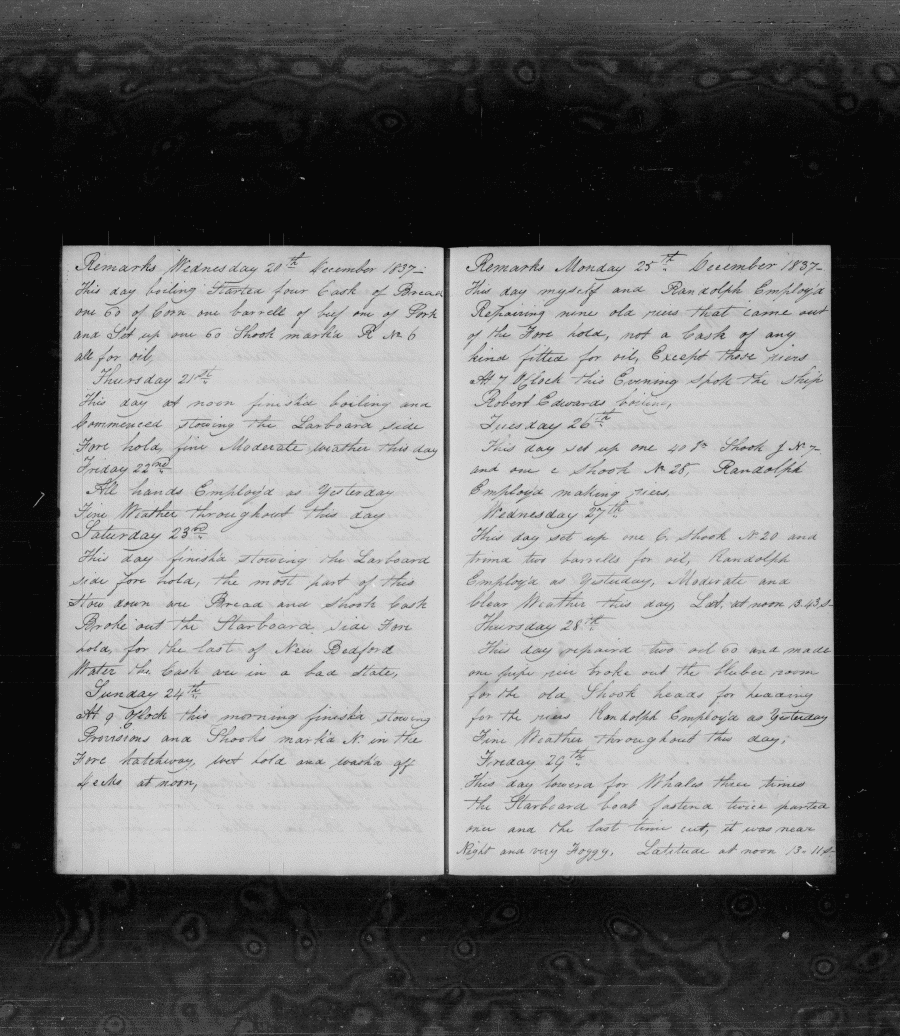 Remarks Wednesday 20th December 1837-
This day boiling Started four Cask of Bread
one 60 of Corn one barrell of beef one of Pork
and Set up one 60 Shook mark'd R No 6
all for oil,
Thursday 21st
This day at noon finished boiling and
Commenced stowing the Larboard side
Fore hold, fine Moderate weather this day
Friday 22nd
All hands Employ'd as Yesterday
Fine Weather throughout this day
Saturday 23rd
This day finish'd stowing the Larboard
side fore hold, the most part of this
stow down are Bread and Shook Cask
Broke out the Starboard side Fore
hold, for the last of New Bedford
Water the Cask are in a bad State,
Sunday 24th
At 9 O'Clock this morning finish'd stowing
Provisions and Shooks mark'd N. in the
Fore hatchway, wet hold and wash'd off
decks at noon,
Remarks Monday 25th December 1837-
This day myself and Randolph Employ'd
Repairing nine old riers that came out
of the Fore hold, not a Cask of any
kind fitted for oil, Except those riers
At 7 O'Clock this Evening spok the ship
Robert Edwards boiling,
Tuesday 26th
This day set up one 40 Shook J N 7-
and one c Shook No 28, Randolph
Employ'd making riers,
Wednesday 27th
This day set up one C. Shook N 20 and
trim'd two barrells for oil, Randolph
Employ'd as Yesterday, Moderate and
Clear Weather this day, Lat. at noon 13.43 S-
Thursday 28th
This day repaired two oil 60 and made
one pipe rier broke out the bluber room
for the old Shook heads for heading
for the riers Randolph Employ'd as Yesterday
Fine Weather throughout this day;
Friday 29th
This day lower'd for Whales three times
the Starboard boat fasten'd twice parted
once and the last time cut, it was near
Night and very Foggy, Latitude at noon 13-11 S-